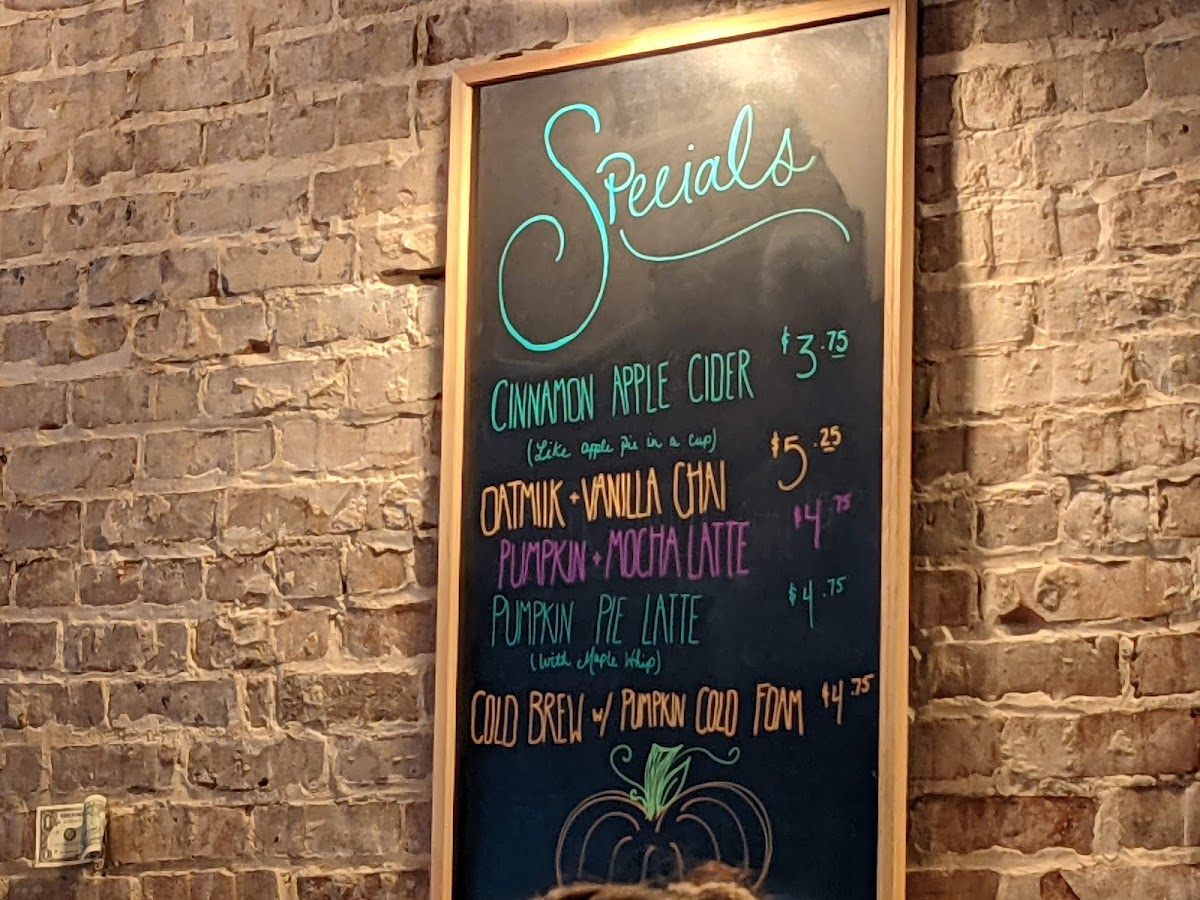 Specials
CINNAMON APPLE CIDER $3.75
(Like apple pie in a cup)
OATMILK + VANILLA CHAI $5.25
PUMPKIN + MOCHA LATTE $4.75
PUMPKIN PIE LATTE $4.75
(with Maple Whip)
COLD BREW w/ PUMPKIN COLD FOAM $4.75